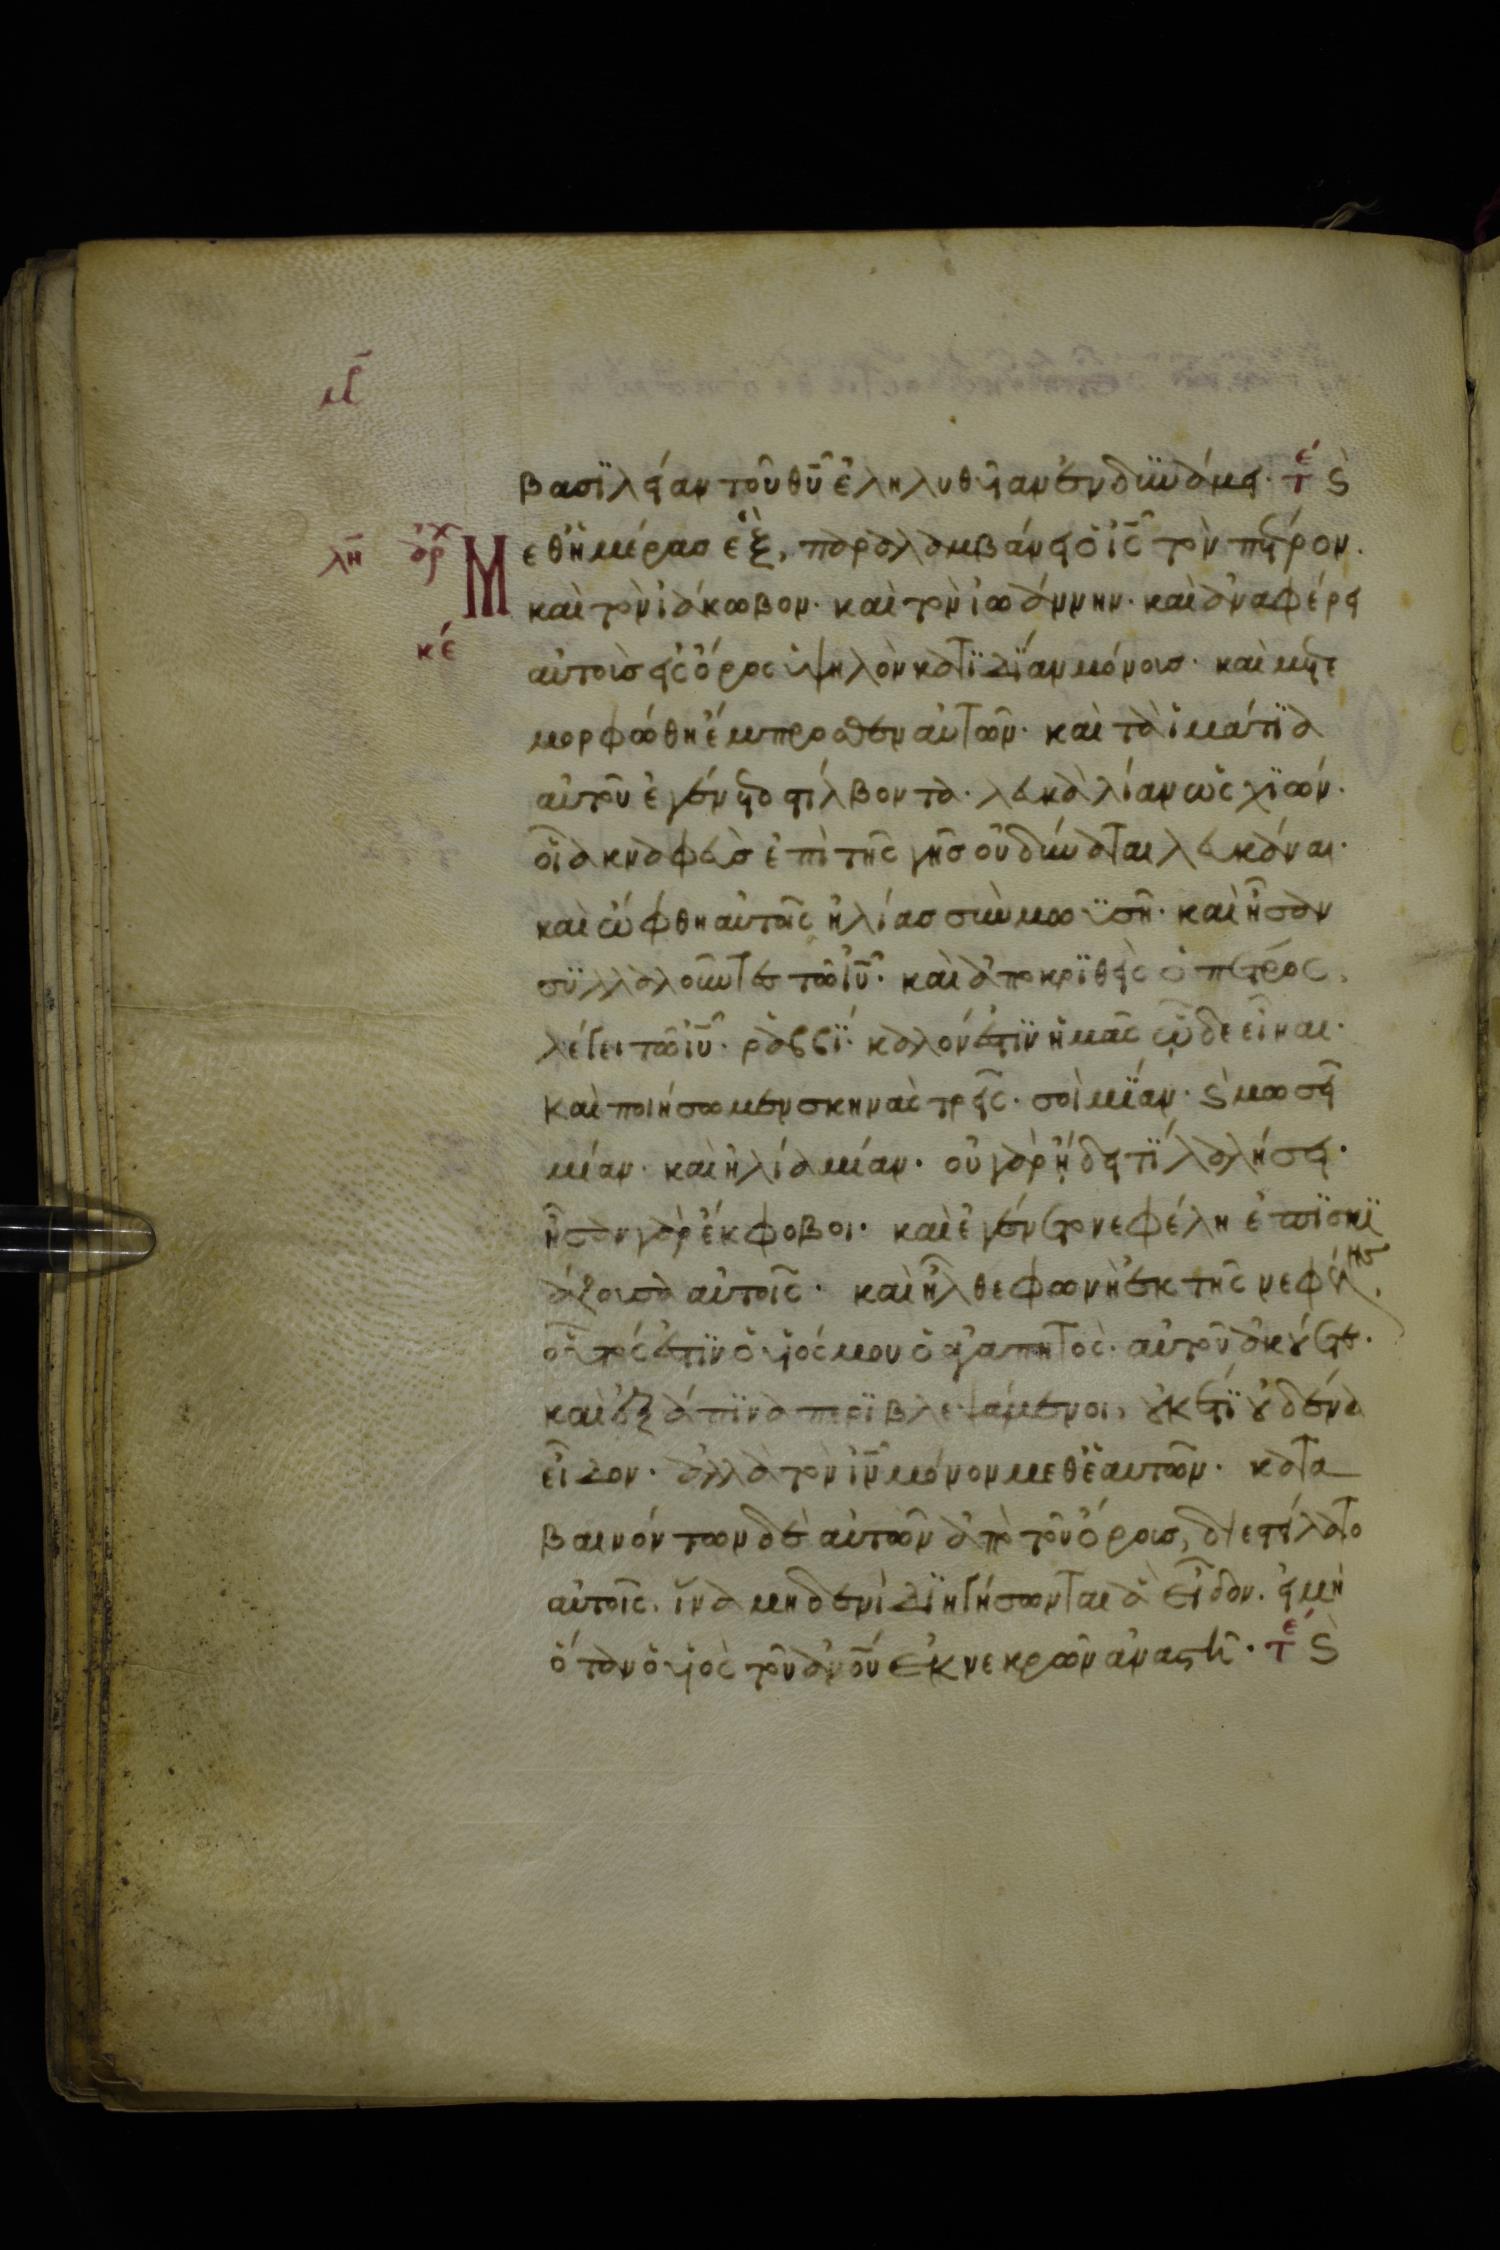 βασϊλείαν τοῦ θῦ ἐληλυθῆαν ἐν δυνάμει· τέ ϛ
λη ἀρχ Μεθἡμέρας ἓξ, παραλαμβάνει ὁ ἰς τὸν πέτρον.
καὶ τὸν ἰάκωβον· καὶ τὸν ἰωάννην· καὶ ἀναφέρει
κέ
αὐτοὺσ εἰς ὄρος ὑψηλὸν κατϊδΐαν μόνουσ· καὶ μετε
μορφώθη ἔμπροσθεν αὐτῶν· καὶ τὰ ἱμάτϊα
αὐτοῦ ἐγένετο στίλβοντα· λευκὰ λίαν ὡς χϊών·
οἷα κναφεὺσ ἐπὶ τῆς γῆσ οὐ δύναται λευκάναι·
καὶ ὤφθη αὐτοῖς ἠλίασ σὺν μωϋσῆ· καὶ ἦσαν
συλλαλοῦντεσ τῶ ἰῦ· καὶ ἀποκρϊθεὶς ὁ πέτρος,
λέγει τῶ ἰῦ· ραββΐ· καλόν ἐστϊν ἡμᾶς ὧδε εἶναι·
καὶ ποιήσωμεν σκηνὰς τρεῖς· σοὶ μΐαν· ϛ μωσῆ
μίαν· καὶ ἠλία μίαν· οὐ γὰρ ἤδει τΐ λαλήσει·
ἦσαν γὰρ ἔκφοβοι· καὶ ἐγένετο νεφέλη ἐπϊσκϊ
άζουσα αὐτοῖς· καὶ ἦλθε φωνὴ ἐκ τῆς νεφέλησ.
οὗτός ἐστϊν ὁ υἱός μου ὁ ἀγαπητὸς· αὐτοῦ ἀκούετε·
καὶ ἐξάπϊνα περϊβλεψάμενοι, οὐκέτϊ οὐδένα
εἶδον· ἀλλὰ τὸν ἰν μόνον μεθ ἑαυτῶν· κατα
βαινόντων δὲ αὐτῶν ἀπὸ τοῦ ὄρουσ, διεστείλατο
αὐτοῖς, ἵνα μηδενὶ δϊηγήσωνται ἃ εἶδον. εἰ μὴ
ὅταν ὁ υἱὸς τοῦ ἀνοῦ ἐκ νεκρῶν ἀναστῆ· τέ ϛ